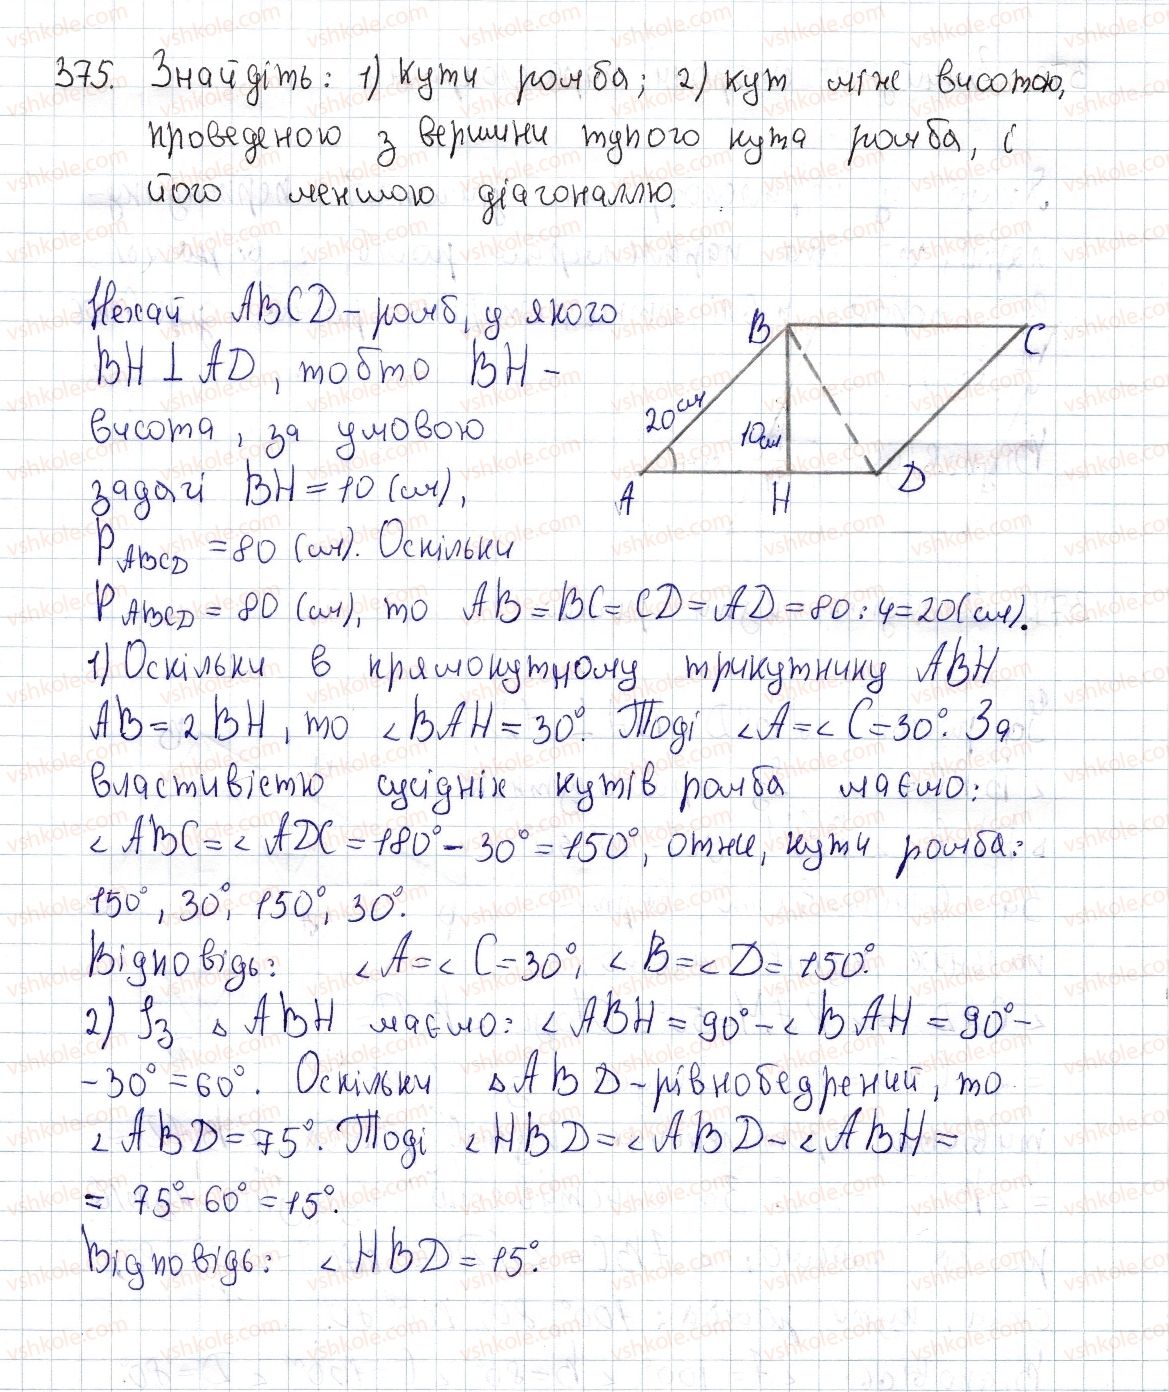 375. Знайдіть: 1) кути ромба; 2) кут між висотою,
проведеною з вершини тупого кута ромба, і
його меншою діагоналлю.
Нехай ABCD – ромб, у якого
BH ⊥ AD, тобто BH –
висота, за умовою
задачі BH = 10 (см),
P ABCD = 80 (см). Оскільки
P ABCD = 80 (см), то AB = BC = CD = AD = 80 : 4 = 20 (см).
1) Оскільки в прямокутному трикутнику ABH
AB = 2 BH, то ∠BAH = 30°. Тоді ∠A = ∠C = 30°. За
властивістю сусідніх кутів ромба маємо:
∠ABC = ∠ADC = 180° – 30° = 150°, отже, кути ромба:
150°, 30°, 150°, 30°.
Відповідь: ∠A = ∠C = 30°, ∠B = ∠D = 150°.
2) Із △ABH маємо: ∠ABH = 90° – ∠BAH = 90° –
– 30° = 60°. Оскільки △ABD – рівнобедрений, то
∠ABD = 75°. Тоді ∠HBD = ∠ABD – ∠ABH =
= 75° – 60° = 15°.
Відповідь: ∠HBD = 15°.
B
C
20 см
10 см
A
H
D
vshkole.com